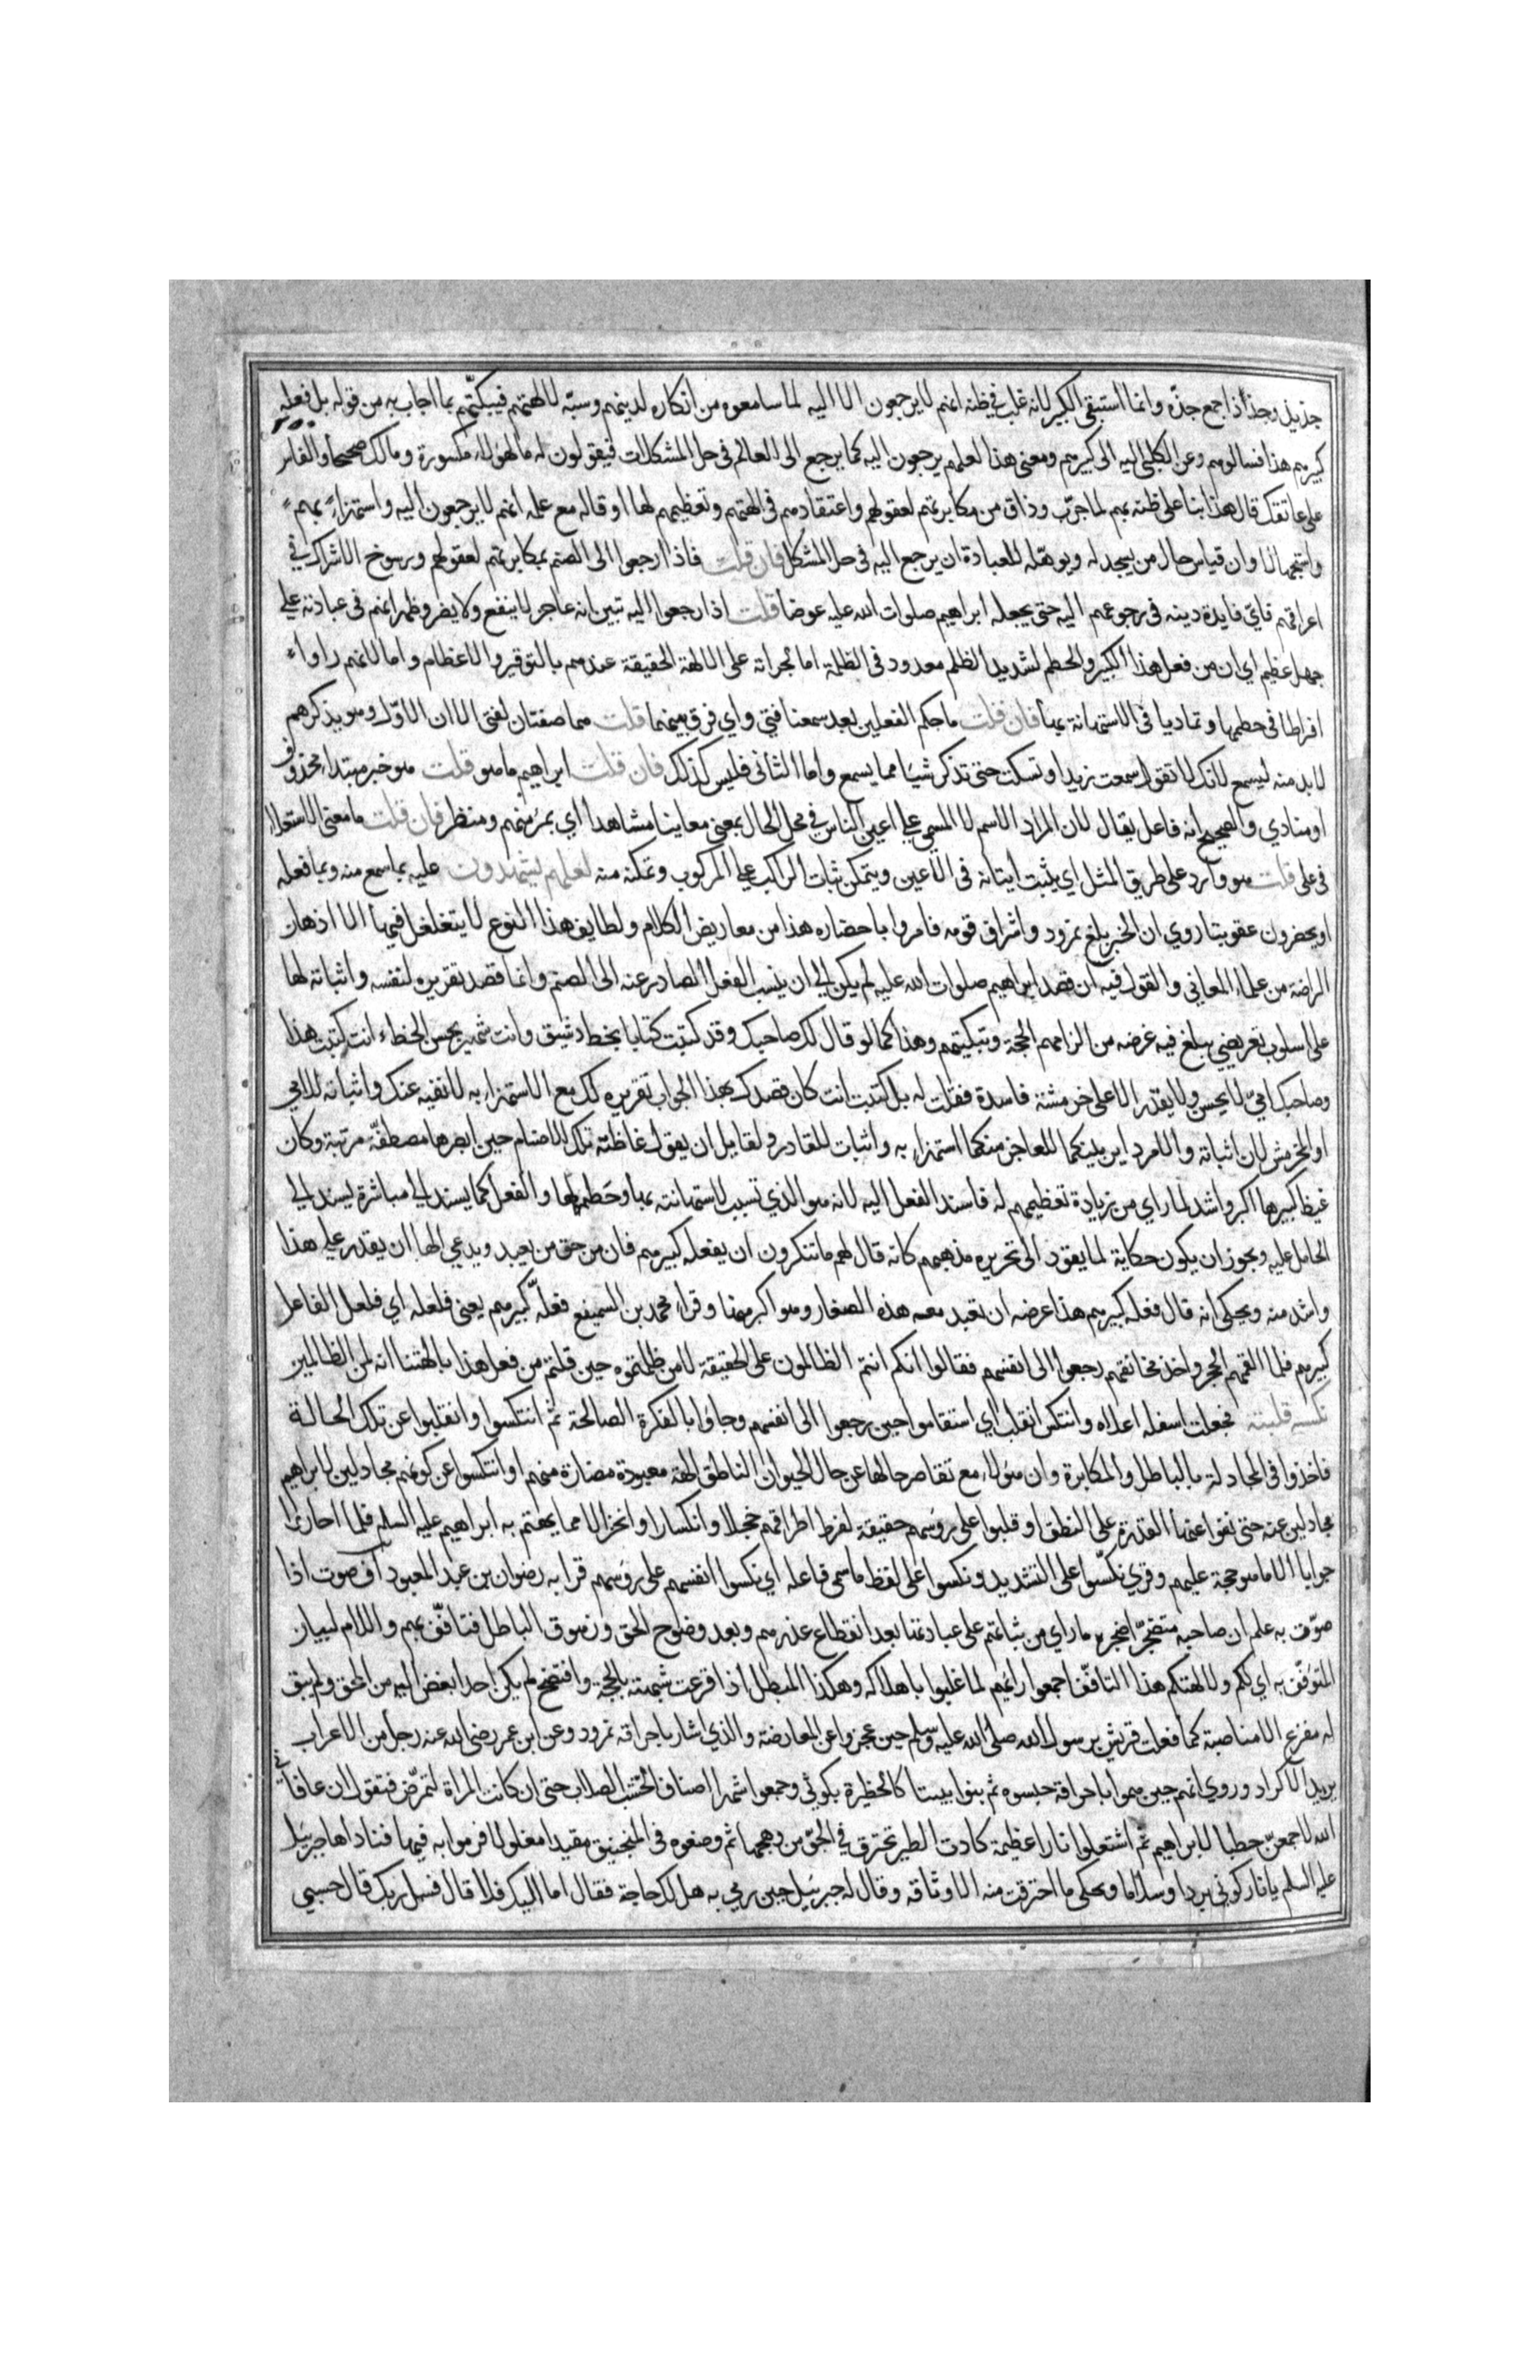 جذيذ وجذاذا جمع جذة وانما استبقى الكبير لانه غلب في ظنه انهم لا يرجعون الا اليه لما تسامعوه من انكاره لدينهم وسبه لالهتهم فيبكتهم بما اجاب به من قوله بل فعله
كبيرهم هذا فسالوهم وعن الكلبي اليه الى كبيرهم ومعنى هذا لعلهم يرجعون اليه كما يرجع الى العالم في حل المشكلات فيقولون له ما لهولاء مكسورة ومالك صحيحا والفاس
على عاتقك قال هذا بنا على ظنه بهم لما جرب وذاق من مكابرتهم لعقولهم واعتقادهم في الهتهم وتعظيمهم لها او قاله مع علمه انهم لا يرجعون اليه واستهزاء بهم
واستجهالا وان قياس حال من يسجد له ويوهله للعبادة ان يرجع اليه في حل المشكل فان قلت فاذا رجعوا الى الصنم بمكابرتهم لعقولهم ورسوخ الاشراك في
اعراقهم فاي فايدة دينية في رجوعهم اليه حتى يجعله ابراهيم صلوات الله عليه غرضا قلت اذا رجعوا اليه تبين انه عاجز لا ينفع ولا يضر وظهر انهم في عبادته على
جهل عظيم اي ان من فعل هذا الكبير والحطم لشديد الظلم معدود في الظلمة اما لجراته على الالهة الحقيقة عندهم بالتوقير والاعظام واما لانهم راوا
افراطا في حطمها وتماديا في الاستهانة بها فان قلت ما حكم الفعلين بعد سمعنا فتى واي فرق بينهما قلت هما صفتان لفتى الا ان الاول وهو يذكرهم
لا بد منه لسمع لانك لا تقول سمعت زيدا وتسكت حتى تذكر شيا مما يسمع واما الثاني فليس كذلك فان قلت ابراهيم ما هو قلت هو خبر مبتدا محذوف
او منادي والصحيح انه فاعل يقال لان المراد الاسم لا المسمى على اعين الناس في محل الحال بمعنى معاينا مشاهدا اي بمرئ منهم ومنظر فان قلت ما معنى الاستعلاء
في على قلت هو وارد على طريق المثل اي يثبت ايتانه في الاعين ويتمكن ثبات الراكب على المركوب وتمكنه منه لعلهم يشهدون عليه بما سمع منه وبما فعله
او يحضرون عقوبتنا روي ان الخبر بلغ نمرود واشراف قومه فامروا باحضاره هذا من معاريض الكلام ولطايف هذا النوع لا يتغلغل فيها الا اذهان
الراضة من علماء المعاني والقول فيه ان قصد ابراهيم صلوات الله عليه لم يكن الى ان ينسب الفعل الصادر عنه الى الصنم وانما قصد تقريره لنفسه واثباته لها
على اسلوب تعريضي يبلغ فيه غرضه من الزامهم الحجة وتبكيتهم وهذا كما لو قال لك صاحبك وقد كتبت كتابا بخط رشيق وانت شهير بحسن الخط اانت كتبت هذا
وصاحبك امي لا يحسن ولا يقدر الا على خرمشة فاسدة فقلت له بل كتبت انت كان قصدك بهذا الجواب تقريره لك مع الاستهزاء به لا نفيه عنك واثباته للامي
او المخرمش لان اثباته والامر داير بينكما للعاجز منكما استهزاء به واثبات للقادر ولقايل ان يقول غاظته تلك الاصنام حين ابصرها مصطفة مرتبة وكان
غيظ كبيرها اكبر واشد لما راي من زيادة تعظيمهم له فاسند الفعل اليه لانه هو الذي تسبب لاستهانته بها وحطمه لها والفعل كما يسند الى مباشره يسند الى
الحامل عليه ويجوز ان يكون حكاية لما يقود الى تحريره مذهبهم كانه قال لهم ما تنكرون ان يفعله كبيرهم فان من حق من يعبد ويدعي الها ان يقدر على هذا
واشد منه ويحكى انه قال فعله كبيرهم هذا غرضه ان تعبد معه هذه الصغار وهو اكبر منها وقراء محمد بن السميفع فعله كبيرهم يعني فلعله اي فلعل الفاعل
كبيرهم فلما القمهم الحجر واخذ مخانقهم رجعوا الى انفسهم فقالوا انكم انتم الظالمون على الحقيقة لا من ظلمتموه حين قلتم من فعل هذا بالهتنا انه لمن الظالمين
نكسه قلبته فجعلت اسفله اعلاه وانتكس انقلب اي استقاموا حين رجعوا الى انفسهم وجاوا بالفكرة الصالحة ثم انتكسوا وانقلبوا عن تلك الحالة
فاخذوا في المجادلة بالباطل والمكابرة وان هولاء مع تقاصر حالها عن حال الحيوان الناطق الهة معبودة مضارة منهم او انتكسوا عن كونهم مجادلين لابراهيم
مجادلين عنه حتى نفوا عنها القدرة على النطق او قلبوا على روسهم حقيقة لفرط اطراقهم خجلا وانكسارا وانخزالا مما بهتهم به ابراهيم عليه السلم فما احاروا
جوابا الا ما هو حجة عليهم وقري نكسوا على التشديد ونكسوا على لفظ ما سمى فاعله اي نكسوا انفسهم على روسهم قرا به رضوان بن عبد المعبود اف صوت اذا
صوت به علم ان صاحبه متضجر اضجره ما راي من ثباتهم على عبادتها بعد انقطاع عذرهم وبعد وضوح الحق وزهوق الباطل فتافف بهم واللام لبيان
المتوفف به اي لكم ولالهتكم هذا التافف اجمعوا رايهم لما غلبوا باهلاكه وهكذا المبطل اذا قرعت شبهته بالحجة وافتضح لم يكن احد ابغض اليه من المحق ولم يبق
له مفزع الا مناصبته كما فعلت قريش برسول الله صلى الله عليه وسلم حين عجزوا عن المعارضة والذي اشار باحراقه نمرود وعن ابن عمر رضي الله عنه رجل من الاعراب
يريد الاكراد وروي انهم حين هموا باحراقه حبسوه ثم بنوا بيتا كالحظيرة بكوثى وجمعوا شهرا اصناف الخشب الصلاب حتى ان كانت المراة لتمرض فتقول ان عافاني
الله لاجمعن حطبا لابراهيم ثم اشتعلوا نارا عظيمة كادت الطير تحترق في الجو من وهجها ثم وضعوه في المنجنيق مقيدا مغلولا فرموا به فيها فناداها جبريل
عليه السلم يا نار كوني بردا وسلاما ويحكى ما احترقت منه الا وثاقه وقال له جبريل حين رمي به هل لك حاجة فقال اما اليك فلا قال فسل ربك قال حسبي